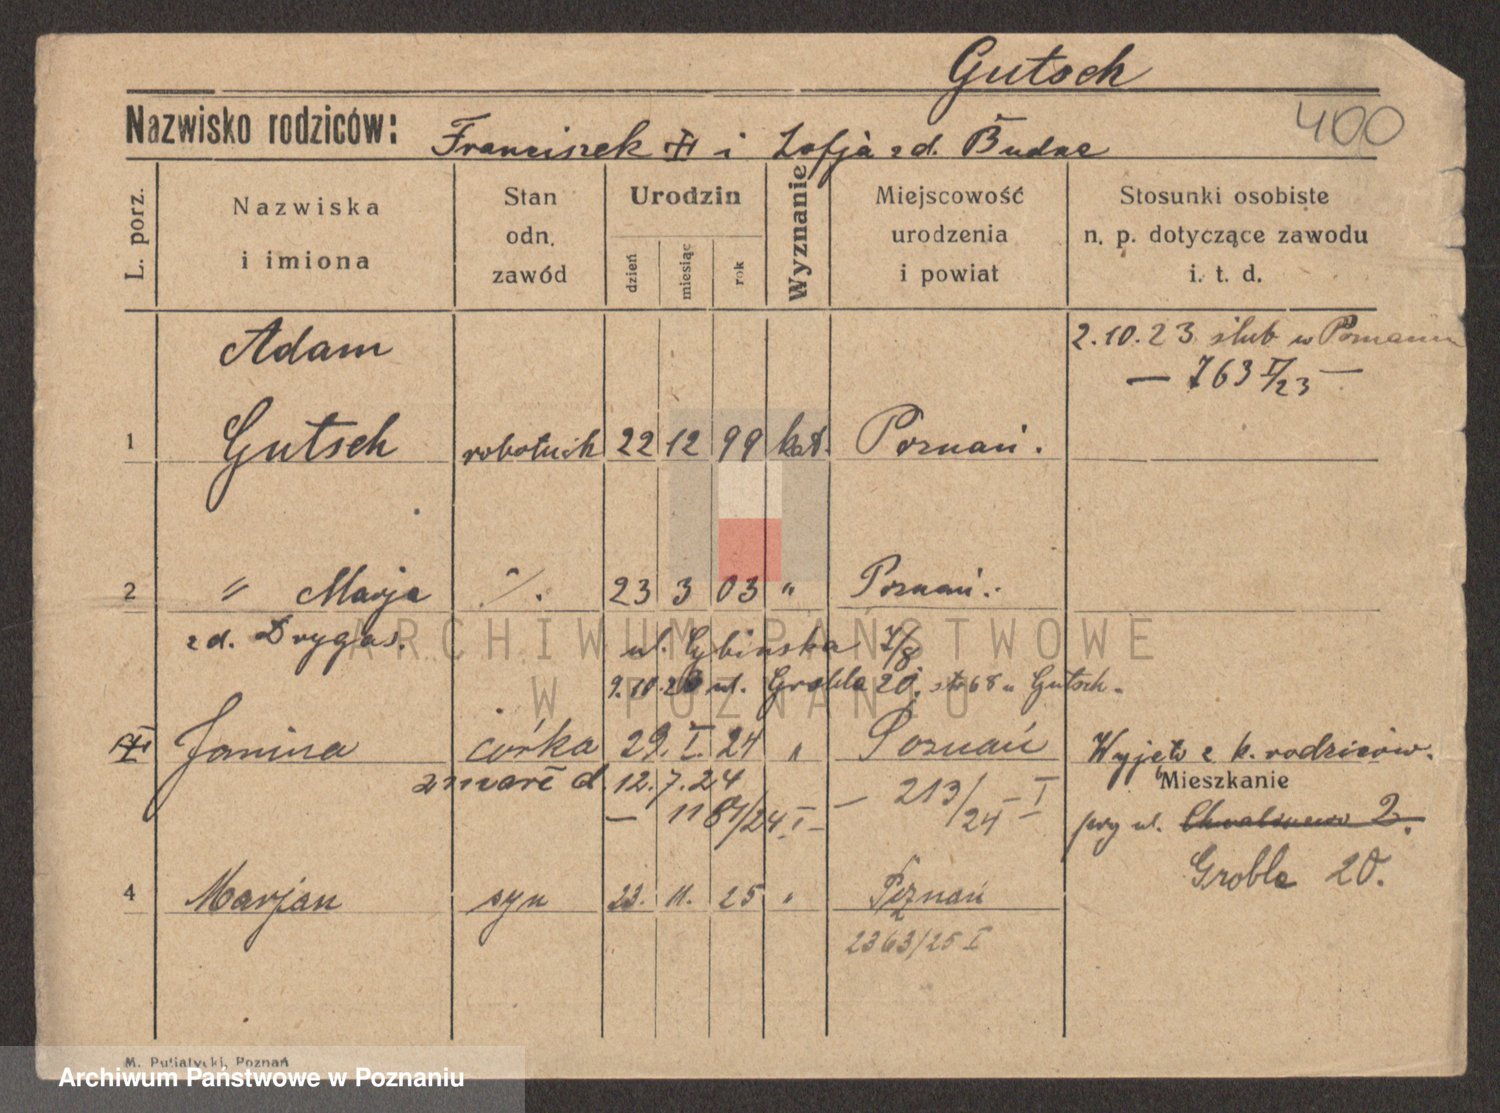 Gutsch
400
Nazwisko rodziców: Franciszek i Zofja zd. Budne
L. porz.
Nazwiska
i imiona
Stan
odn.
zawód
Urodzin
dzień
miesiąc
rok
Wyznanie
Miejscowość
urodzenia
i powiat
Stosunki osobiste
n. p. dotyczące zawodu
i. t. d.
2.10.23 ślub w Poznaniu
— 763 I/23 —
Adam
1 Gutsch robotnik 22 12 99 kat. Poznań.
2 " Marja ·/. 23 3 03 " Poznań.
zd. Drygas. ul. Gybińska 7/8
9.10.26 ul. Grobla 20. Gutsch.
Janina córka 29. I. 24 " Poznań Wyjęto z k. rodziców.
zmarł d. 12.7.24 — 213/24 I —
Mieszkanie
— 1181/24 I — przy ul. 2.
Grobla 20.
4 Marjan syn 23. 11. 25 " Poznań
2363/25 I
M. Putiatycki, Poznań
ARCHIWUM PAŃSTWOWE
W POZNANIU
Archiwum Państwowe w Poznaniu